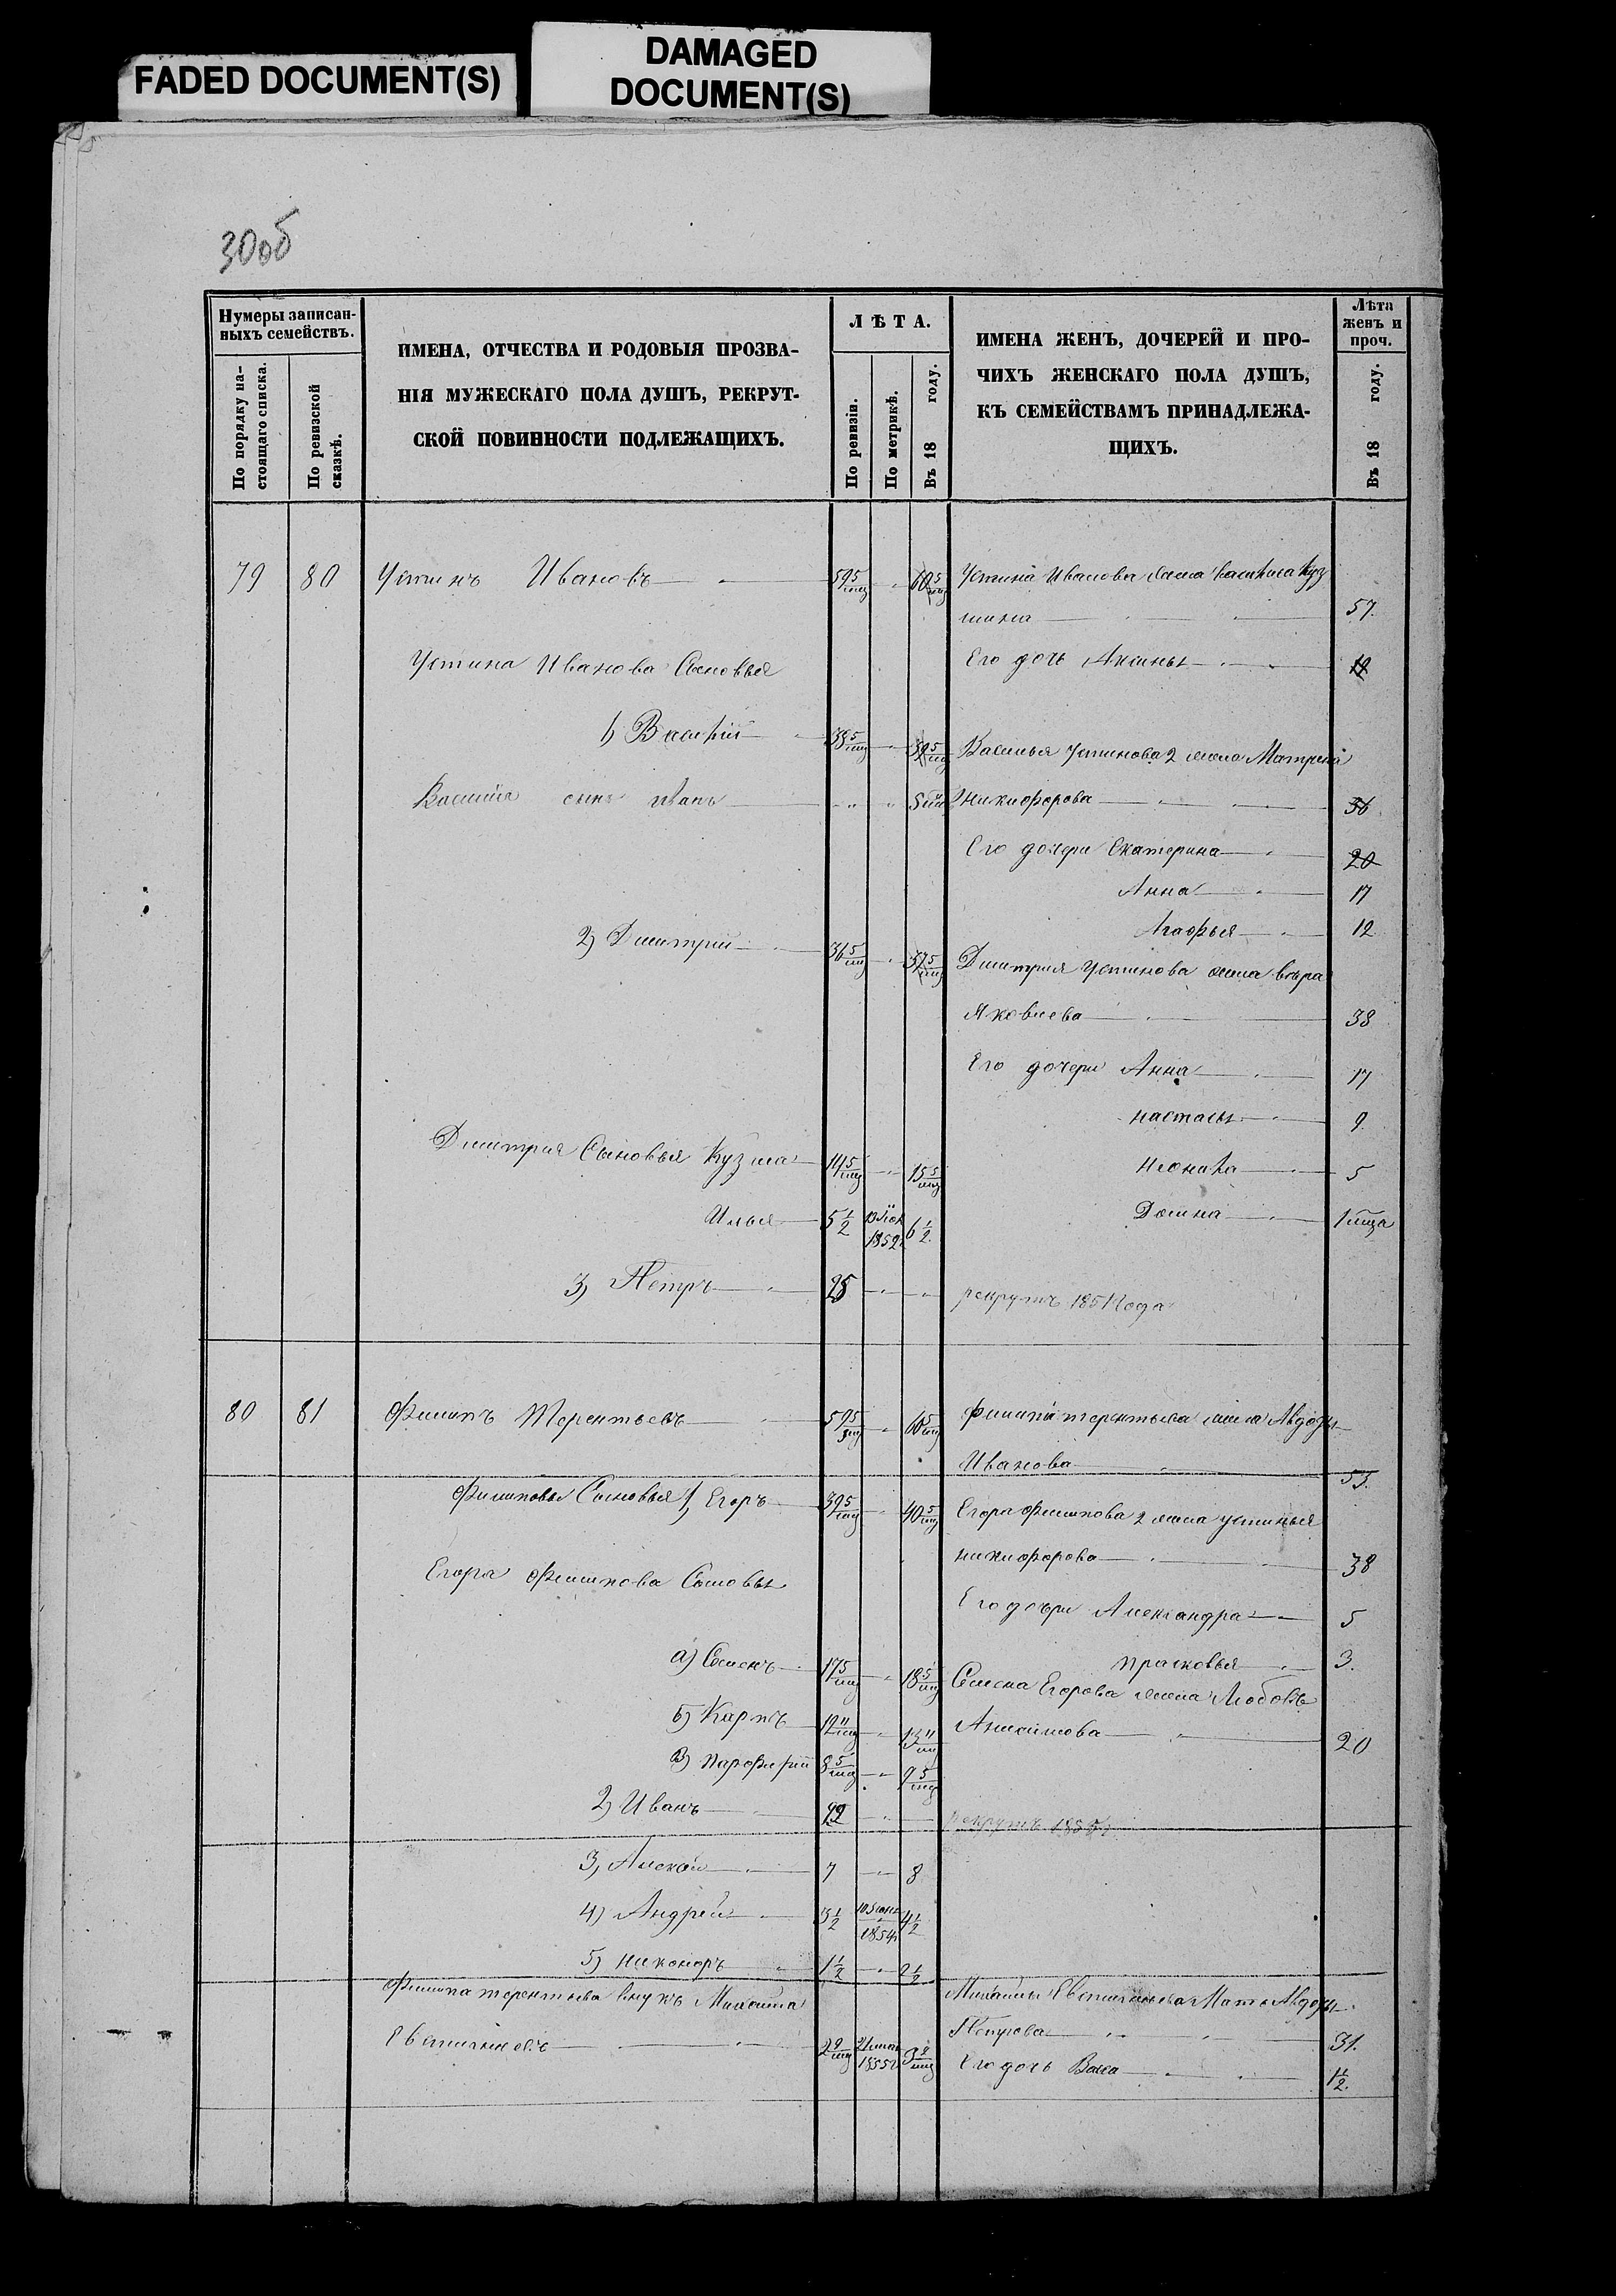 FADED DOCUMENT(S)
DAMAGED
DOCUMENT(S)
30об
Нумеры записан-
ныхъ семействъ.
По порядку на-
стоящаго списка.
По ревизской
сказкѣ.
ИМЕНА, ОТЧЕСТВА И РОДОВЫЯ ПРОЗВА-
НІЯ МУЖЕСКАГО ПОЛА ДУШЪ, РЕКРУТ-
СКОЙ ПОВИННОСТИ ПОДЛЕЖАЩИХЪ.
ЛѢТА.
По ревизіи.
По метрикѣ.
Въ 18 году.
ИМЕНА ЖЕНЪ, ДОЧЕРЕЙ И ПРО-
ЧИХЪ ЖЕНСКАГО ПОЛА ДУШЪ,
КЪ СЕМЕЙСТВАМЪ ПРИНАДЛЕЖА-
ЩИХЪ.
Лѣта
женъ и
проч.
Въ 18 году.
79 80 Устинъ Ивановъ 59 5/мц 60 5/мц Устина Иванова жена Куз
мина 57.
Устина Иванова Сыновья Его дочь Аксинья
1) Василій 38 5/мц 39 5/мц Василья Устинова 2 жена Матрена
Василія сынъ Иванъ Никифорова 36
Его дочери Екатерина 20
Анна 17
Агафья 12
2) Дмитрій 36 5/мц 37 5/мц Дмитрія Устинова жена Вѣра
Яковлева 38
Его дочери Анна 17
Настасья 9
Дмитрія Сыновья Кузма 14 5/мц 15 5/мц 5
Илья 5 1/2 1852 6 1/2 Домна
3) Петръ 25 рекрутъ 1851 года
80 81 Филипъ Терентьевъ 59 5/мц 60 5/мц Филипа Терентьева жена Авдотья
Иванова 55.
Филиповы Сыновья 1) Егоръ 39 5/мц 40 5/мц Егора Филипова 2 жена Устинья
Никифорова 38
Егора Филипова Сыновья
Его дочери Александра 5
Прасковья 3.
а) Семенъ 17 5/мц 18 5/мц Семена Егорова жена Любовь
б) Карпъ 12 11/мц 13 11/мц Анисимова 20
в) Парфирій 8 5/мц 9 5/мц
2) Иванъ 22 рекрутъ
3) Алексѣй 7 8
4) Андрей 3 1/2 1854 4 1/2
5) Никоноръ 1 1/2 2 1/2
Филипа Терентьева внукъ Михаила Михаилы Мать Авдотья
Петрова 31.
1855 Его дочь Васса 1 1/2.